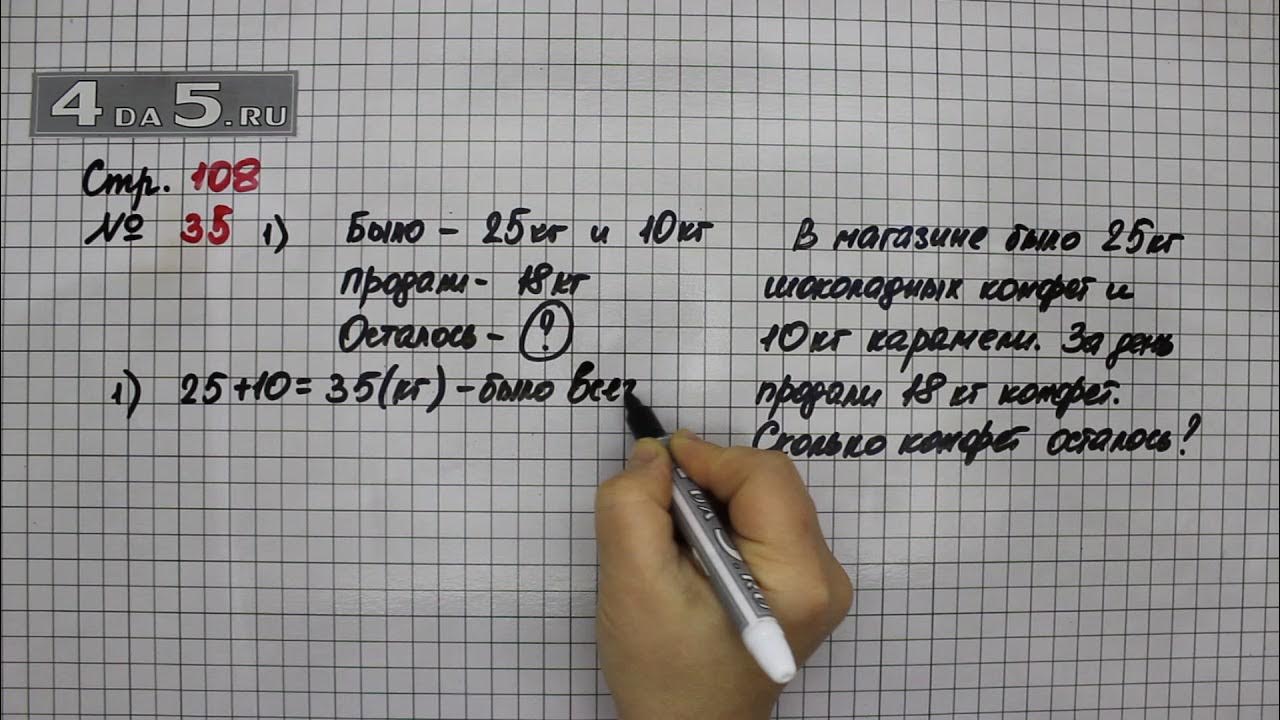 4DA5.RU
Стр. 108
№ 35 1) Было - 25кг и 10кг
Продали - 18кг
Осталось - ?
1) 25+10=35(кг) - было всег
В магазине было 25кг
шоколадных конфет и
10кг карамели. За день
продали 18 кг конфет.
Сколько конфет осталось?
4DA5.RU